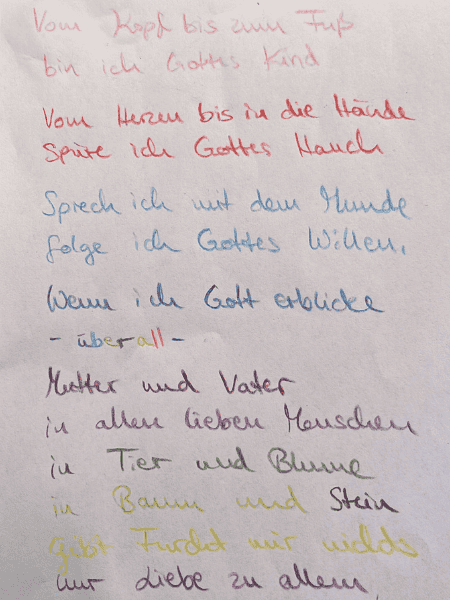 Vom Kopf bis zum Fuß
bin ich Gottes Kind
Vom Herzen bis in die Hände
Spüre ich Gottes Hauch
Sprech ich mit dem Munde
folge ich Gottes Willen.
Wenn ich Gott erblicke
- überall -
Mutter und Vater
in allen lieben Menschen
in Tier und Blume
in Baum und Stein
gibt Furcht mir nichts
nur Liebe zu allem,